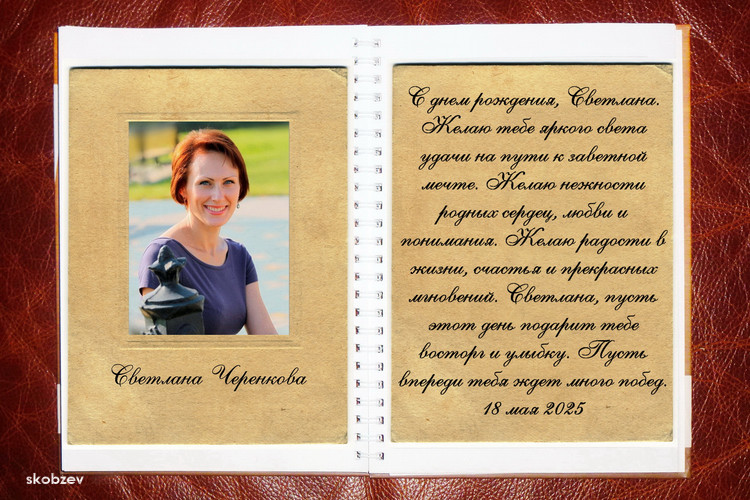 Светлана Черенкова
С днем рождения, Светлана.
Желаю тебе яркого света
удачи на пути к заветной
мечте. Желаю нежности
родных сердец, любви и
понимания. Желаю радости в
жизни, счастья и прекрасных
мгновений. Светлана, пусть
этот день подарит тебе
восторг и улыбку. Пусть
впереди тебя ждет много побед.
18 мая 2025
skobzev